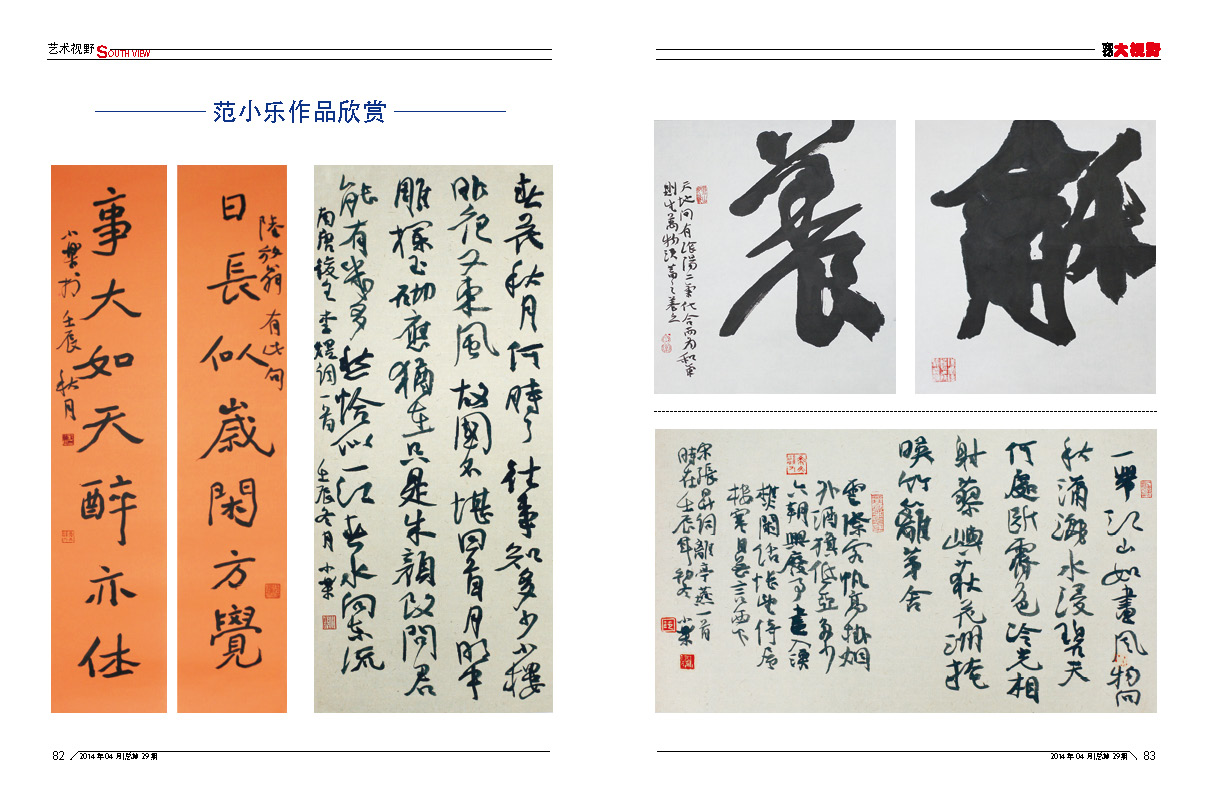 艺术视野 SOUTH VIEW
大视野
范小乐作品欣赏
陸放翁有此句
日長似歲閑方覺
事大如天醉亦休
小樂於壬辰秋月
春花秋月何時了往事知多少小樓
昨夜又東風故國不堪回首月明中
雕欄玉砌應猶在只是朱顏改問君
能有幾多愁恰似一江春水向東流
南唐後主李煜詞一首 壬辰冬月小樂
龢
養
天地间有陰陽二氣化合而为和氣
則生萬物
一帶江山如畫風物向
秋瀟灑水浸碧天
何處斷霽色冷光相
射蓼嶼荻花洲掩
映竹籬茅舍
雲際客帆高掛烟
外酒旗低亞多少
六朝興廢事盡入漁
樵閑話悵望倚層
樓寒日無言西下
宋張昇詞離亭燕一首
時在壬辰年 小樂
82 2014年04月|总第29期
2014年04月|总第29期 83